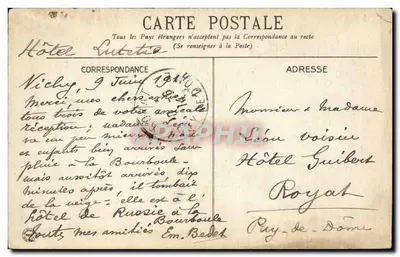 CARTE POSTALE
Tous les Pays étrangers n'acceptent pas la Correspondance au recto
(Se renseigner à la Poste)
Hôtel Lutetia
CORRESPONDANCE
Vichy, 9 Juin 1914
Merci, mes chers amis
tous trois de votre amicale
réception, madame
va un peu mieux, mari
et enfants bien arrivés
pluie à la Bourboule
mais aussitôt arrivés, dix
minutes après, il tombait
de la neige. elle est à l'
hôtel de Russie à la
Bourboule
toutes mes amitiés Em. Bedet
ADRESSE
Monsieur & Madame
Léon Voisin
Hôtel Guibert
Royat
Puy-de-Dôme